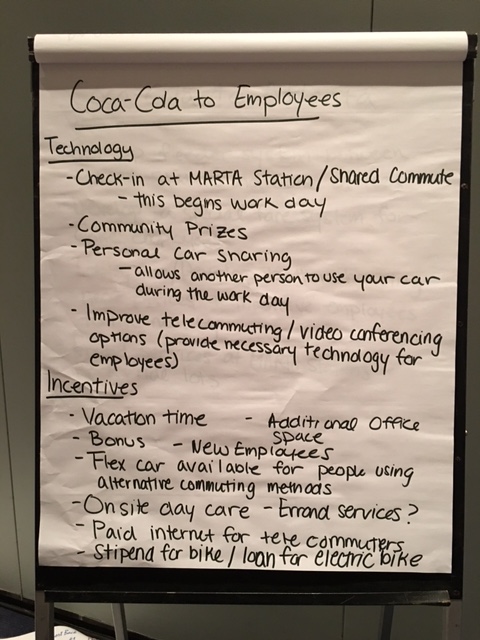 Coca-Cola to Employees
Technology
- Check-in at MARTA Station/Shared Commute
- this begins work day
- Community Prizes
- Personal Car Sharing
- allows another person to use your car
during the work day
- Improve telecommuting/video conferencing
options (provide necessary technology for
employees)
Incentives
- Vacation time - Additional Office
space
- Bonus - New Employees
- Flex car available for people using
alternative commuting methods
- Onsite day care - Errand services?
- Paid internet for tele commuters
- Stipend for bike/loan for electric bike